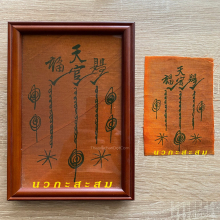 天官
賜 福
นวกะสะสม
天官
賜 福
นวกะสะสม